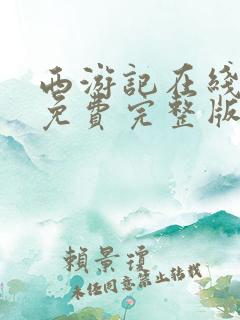 西游記在綫
免費完整版
賴景瓊
未经同意禁止转载